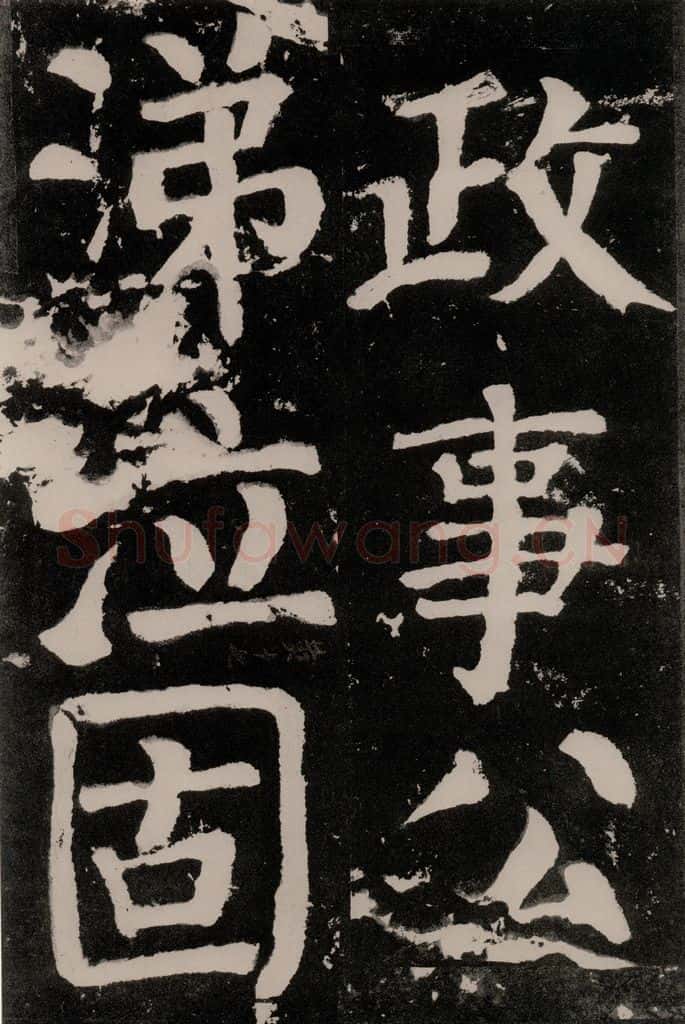 政事公
涕泣固
Shufawang.CN